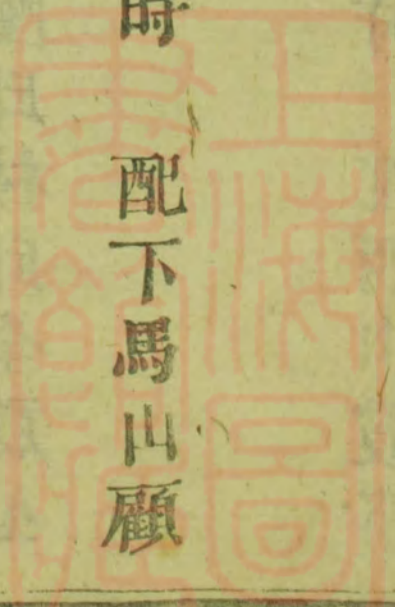 時 配下馬山顧
上海圖
書館藏